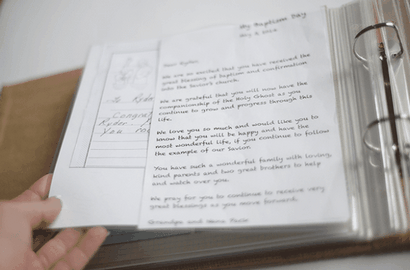 My Baptism Day
May 3, 2014
Dear Ryder,
We are so excited that you have received the
great blessing of baptism and confirmation
into the Savior's church.
We are grateful that you will now have the
companionship of the Holy Ghost as you
continue to grow and progress through this
life.
We love you so much and would like you to
know that you will be happy and have the
most wonderful life, if you continue to follow
the example of our Savior.
You have such a wonderful family with loving,
kind parents and two great brothers to help
and watch over you.
We pray for you to continue to receive very
great blessings as you move forward.
Grandpa and Nana
To Ryder
Congra
Ryder
You